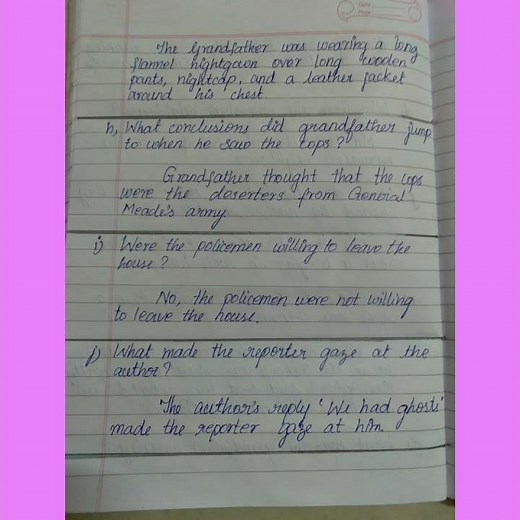 The Grandfather was wearing a long
flannel nightgown over long wooden
pants, nightcap, and a leather jacket
around his chest
h, What conclusions did grandfather jump
to when he saw the cops?
Grandfather thought that the cops
were the deserters from General
Meade's army.
i) Were the policemen willing to leave the
house?
No, the policemen were not willing
to leave the house.
j) What made the reporter gaze at the
author?
The author's reply 'We had ghosts'
made the reporter gaze at him.